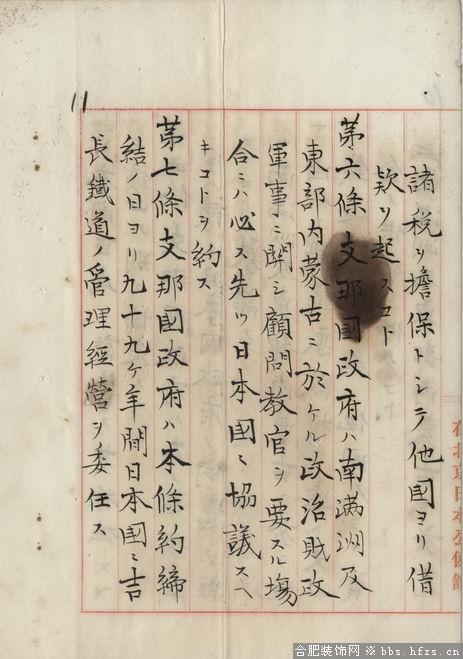 諸税ヲ擔保トシテ他國ヨリ借
欵ヲ起スコト
第六條支那國政府ハ南満洲及
東部内蒙古ニ於ケル政治財政
軍事ニ関シ顧問教官ヲ要スル場
合ニハ必ス先ツ日本國ニ協議スヘ
キコトヲ約ス
第七條支那國政府ハ本條約締
結ノ日ヨリ九十九ケ年間日本國ニ吉
長鐵道ノ管理經營ヲ委任ス
11
在北京日本公使館
合肥装饰网 ※ bbs.hfzs.cn